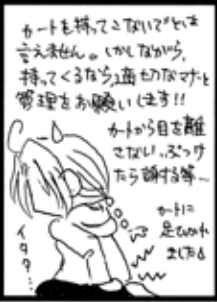 カートを持ってこないでとは
言えません。しかしながら、
持ってくるなら適切なマナーと
管理をお願いします!!
カートから目を離
さない、ぶつけ
たら謝る等…
カートに
足ひかれ
ました
イタタ…